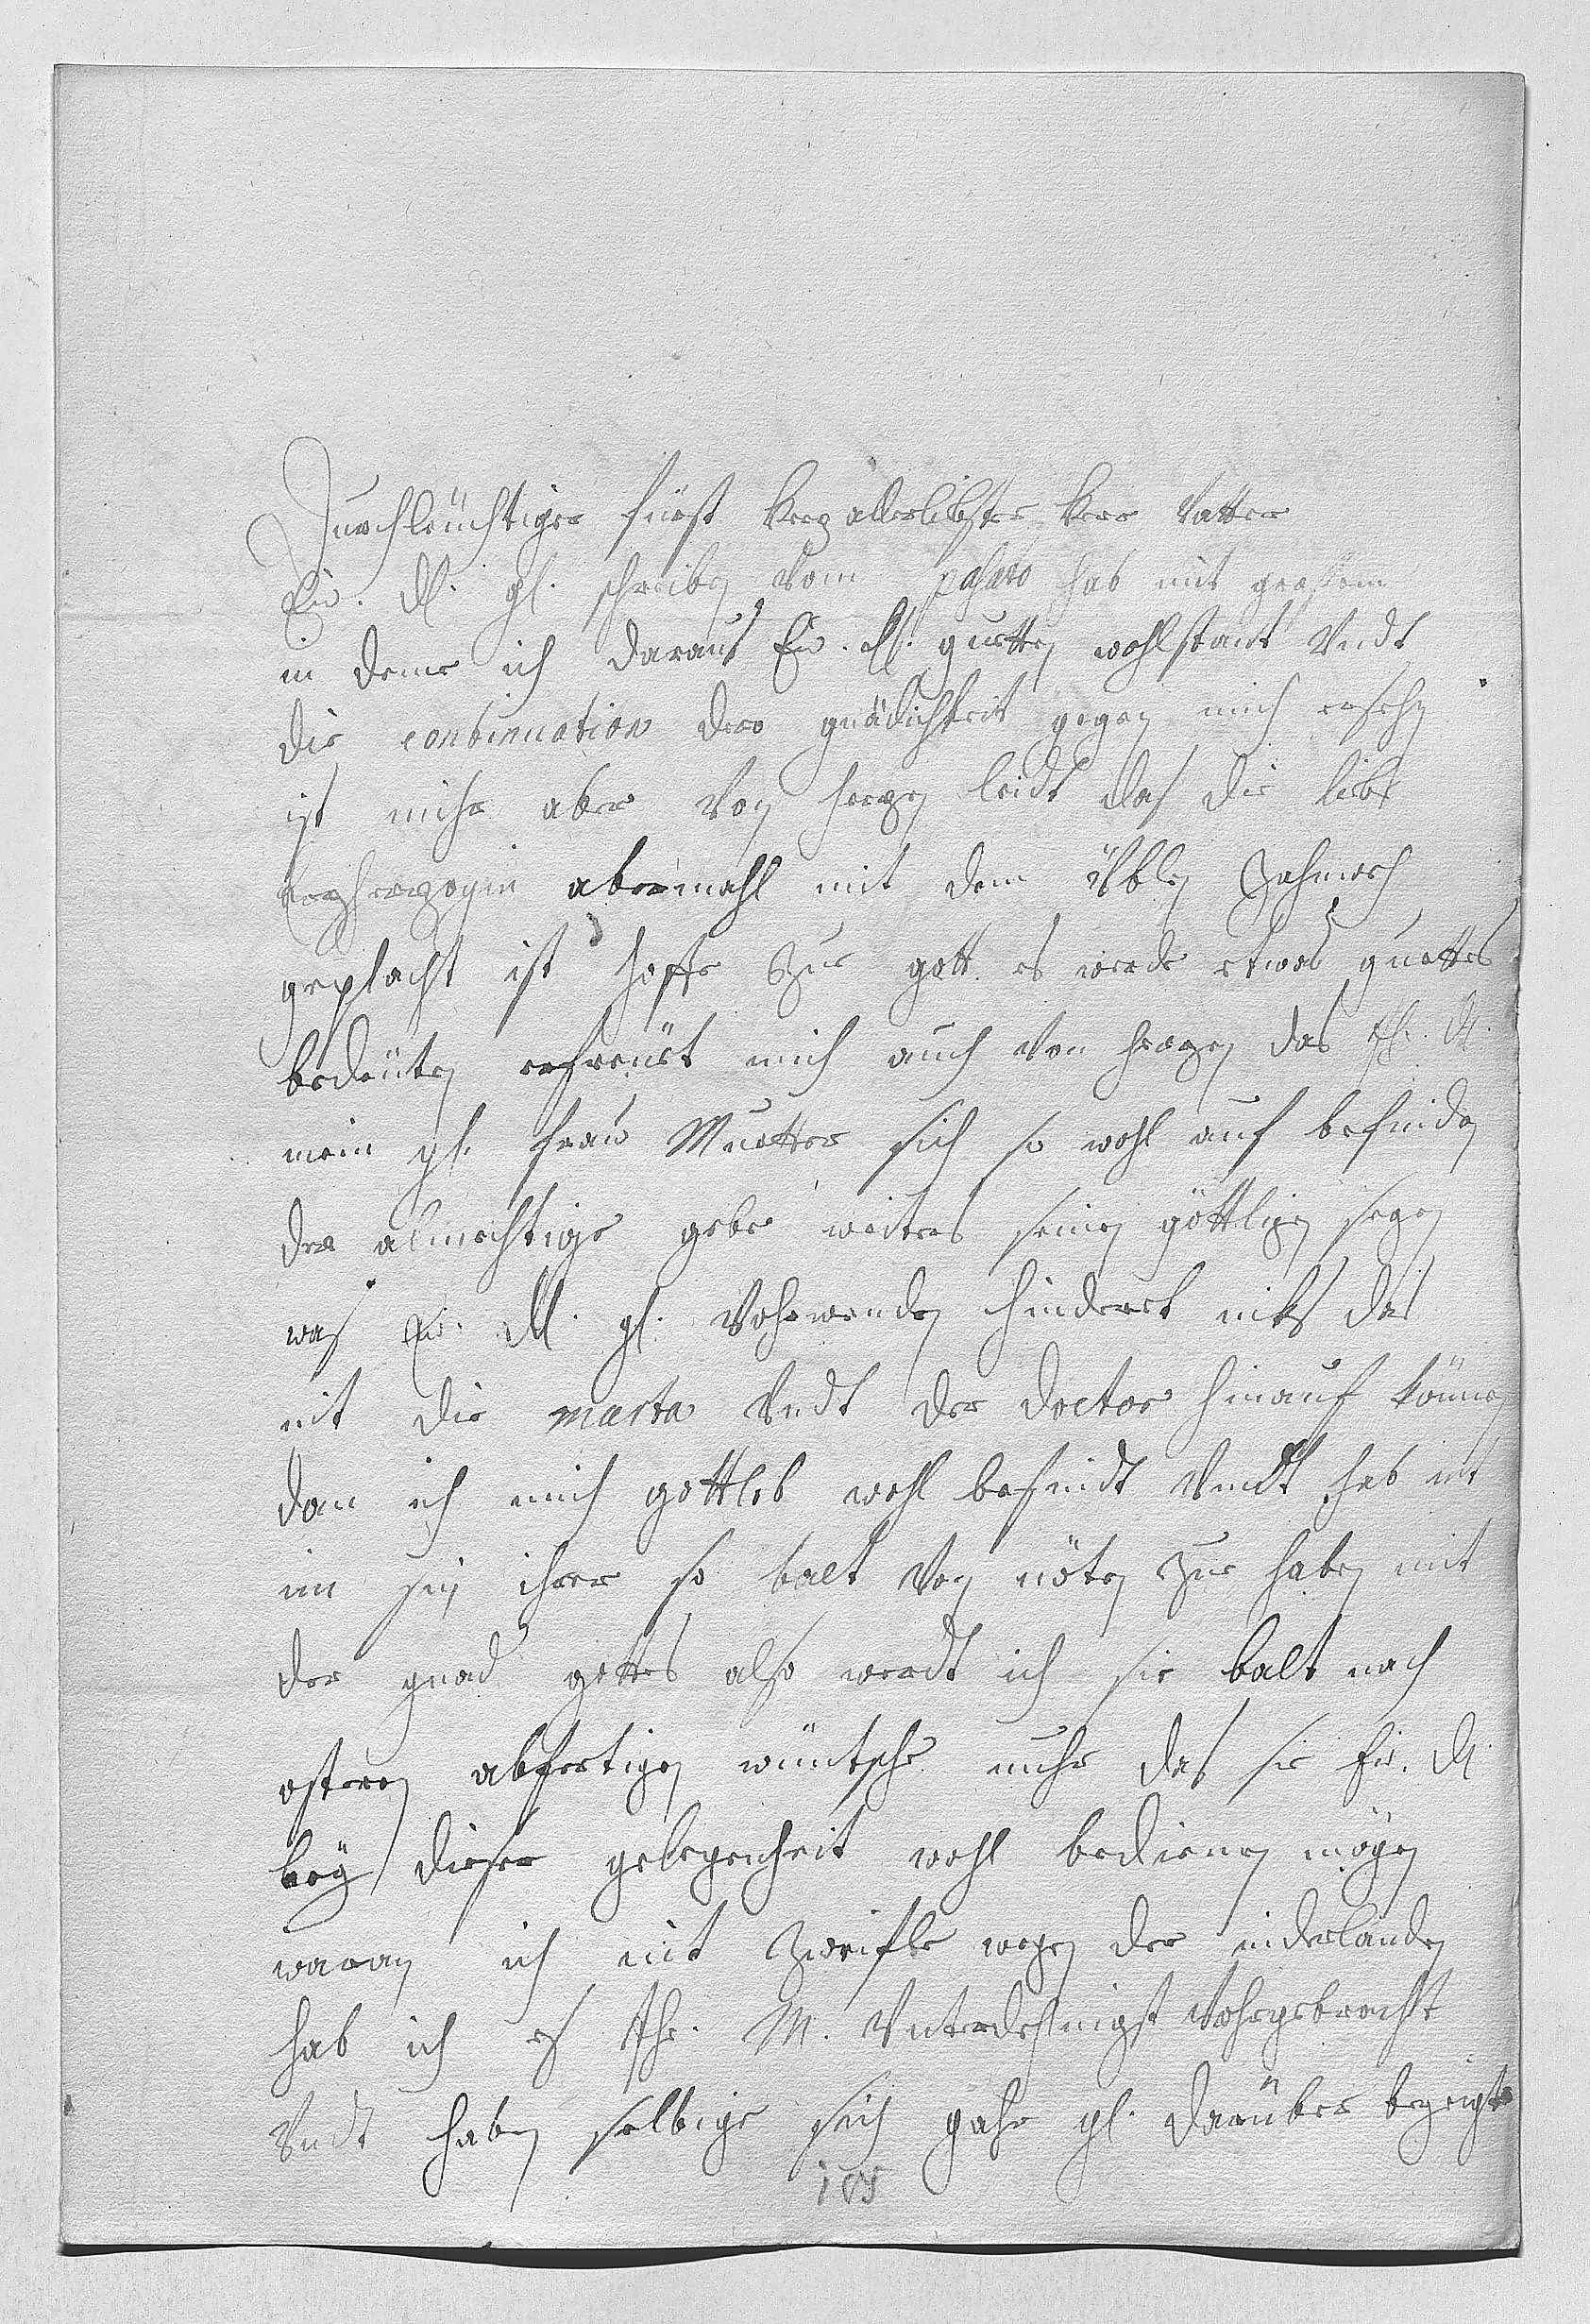 Durchleuchtiger fürst herzallerlibster herr vatter
Ew. Dl. gl. schreiben vom pasato hab mit grosem
in deme ich daraus Ew. Dl. gutten wohlstant vndt
die continuation dero gnädichkeit gegen mich ersehen
ist mihr aber von herzen leidt das die liebe
erzherzogin abermahl mit dem üblen Zahnweh
geplacht ist hoffe zue gott es werde etwas guettes
bedeuten erfreuet mich auch von herzen das Ih. Dl.
mein gl. frau Muetter sich so wohl auf befinden
der almechtige gebe weiters seinen göttligen segen
was Ew. Dl. gl. vohrwenden hinderet niks das
nit die marta vndt der doctor hinauf können
dan ich mich gottlob wohl befindt vndt hab nit
im sin ihrer so balt von nöten zue haben mit
der gnad gottes also werdt ich sie balt nach
osteren abfertigen wüntsche nuhr das sie Ew. Dl.
bey dieser gelegenheit wohl bedienen mögen
waran ich nit zweifle wegen der niderlanden
hab ich es Ihr. M. vnterdehnigst vohrgebracht
vndt haben selbige sich gahr gl. darüber bezeigt
105